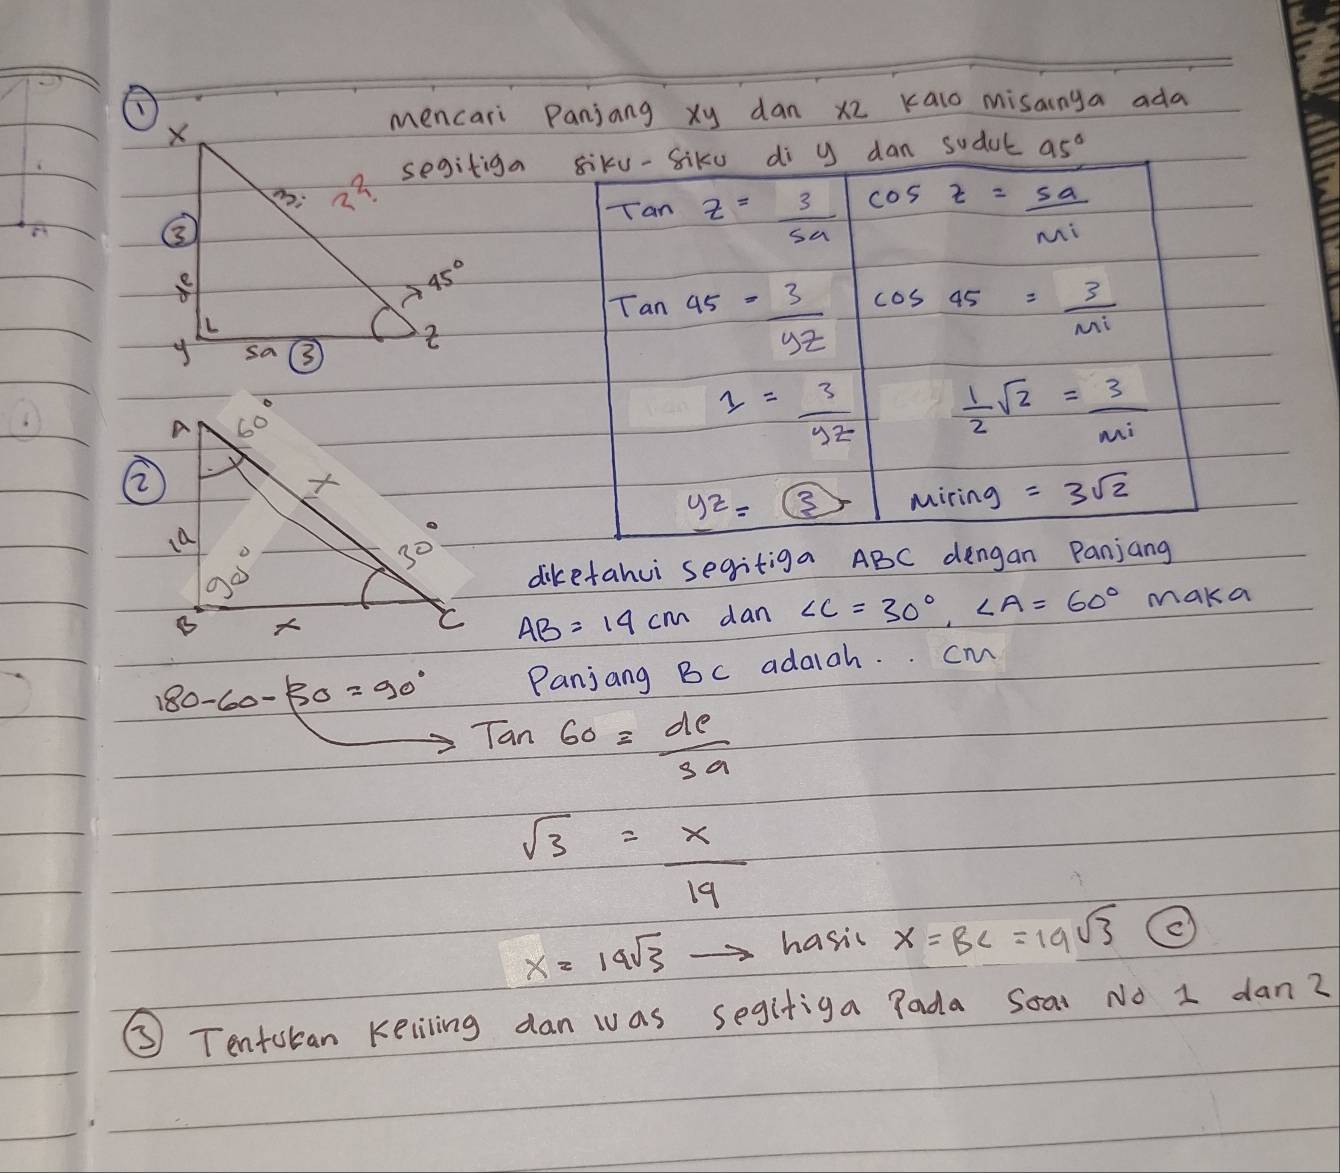 ① mencari Panjang xy dan xz Kalo misalnya ada
segitiga siku-siku di y dan sudut 45°
X
mi
③
de
45°
y
sa ③
z
Tan z = 3/sa
cos z = sa/mi
Tan 45 = 3/yz
cos 45 = 3/mi
1 = 3/yz
1/2 √2 = 3/mi
yz = ③
Miring = 3√2
②
A
60°
x
14
90°
30°
B
x
C
diketahui segitiga ABC dengan Panjang
AB = 14 cm dan ∠C = 30°, ∠A = 60° maka
Panjang BC adalah . . cm
180-60-30 = 90°
→ Tan 60 = de/sa
√3 = x/14
x = 14√3 → hasil x = BC = 14√3 ⓒ
③ Tentukan Keliling dan luas segitiga Pada Soal No 1 dan 2